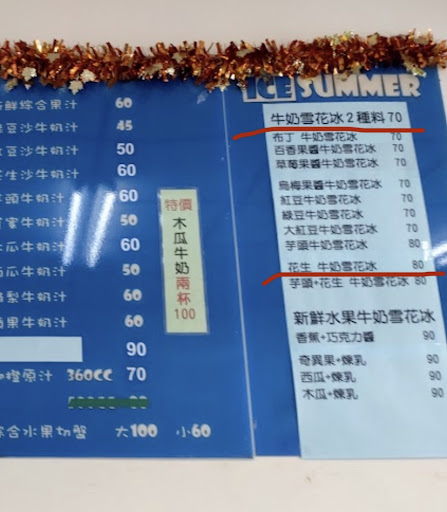 鮮綜合果汁 60
豆沙牛奶汁 45
豆沙牛奶汁 50
生沙牛奶汁 60
頭牛奶汁 60
蜜牛奶汁 50
瓜牛奶汁 60
瓜牛奶汁 50
梨牛奶汁 60
果牛奶汁 60
90
橙原汁 360CC 70
綜合水果切盤 大100 小60
特價
木瓜牛奶
兩杯
100
ICE SUMMER
牛奶雪花冰2種料70
布丁 牛奶雪花冰 70
百香果醬牛奶雪花冰 70
草莓果醬牛奶雪花冰 70
烏梅果醬牛奶雪花冰 70
紅豆牛奶雪花冰 70
綠豆牛奶雪花冰 70
大紅豆牛奶雪花冰 70
芋頭牛奶雪花冰 80
花生 牛奶雪花冰 80
芋頭+花生 牛奶雪花冰 80
新鮮水果牛奶雪花冰
香蕉+巧克力醬 90
奇異果+煉乳 90
西瓜+煉乳 90
木瓜+煉乳 90